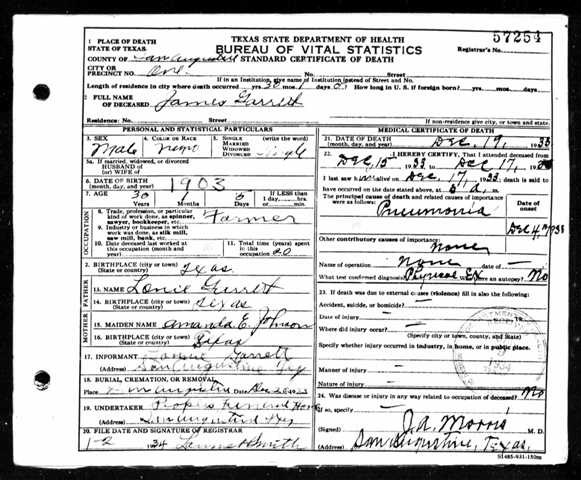 TEXAS STATE DEPARTMENT OF HEALTH
BUREAU OF VITAL STATISTICS
STANDARD CERTIFICATE OF DEATH
57254
Registrar's No.
1 PLACE OF DEATH
STATE OF TEXAS
COUNTY OF San Augustine
CITY OR
PRECINCT NO. One
If in an Institution, give name of Institution instead of Street and No.
Length of residence in city where death occurred 30 yrs. mos. days. How long in U. S. if foreign born? yrs. mos. days.
2 FULL NAME
OF DECEASED James Garrett
Residence: No. Street
If non-residence give city, or town and state.
PERSONAL AND STATISTICAL PARTICULARS
3. SEX
4. COLOR OR RACE
5. SINGLE
MARRIED
WIDOWED
DIVORCED
(write the word)
Male Negro Single
5a. If married, widowed, or divorced
HUSBAND of
(or) WIFE of
6. DATE OF BIRTH
(month, day, and year) 1903
7. AGE Years Months Days If LESS than
1 day, hrs.
or min.
30
OCCUPATION
8. Trade, profession, or particular
kind of work done, as spinner,
sawyer, bookkeeper, etc. Farmer
9. Industry or business in which
work was done, as silk mill,
saw mill, bank, etc.
10. Date deceased last worked at
this occupation (month and
year)
11. Total time (years)
spent in this
occupation 20
12. BIRTHPLACE (city or town)
(State or country) Texas
FATHER
13. NAME Lonie Garrett
14. BIRTHPLACE (city or town)
(State or country) Texas
MOTHER
15. MAIDEN NAME Amanda E. Johnson
16. BIRTHPLACE (city or town)
(State or country) Texas
17. INFORMANT Garrett
(Address) San Augustine Tex
18. BURIAL, CREMATION, OR REMOVAL
Place San Augustine Date Dec
19. UNDERTAKER Peoples Funeral Home
(Address) San Augustine Tex
20. FILE DATE AND SIGNATURE OF REGISTRAR
1-2 1934 Smith
MEDICAL CERTIFICATE OF DEATH
21. DATE OF DEATH
(month, day, and year) Dec, 17, 1933
22. I HEREBY CERTIFY, That I attended deceased from
Dec, 15 1933 to Dec, 17, 1933
I last saw him alive on Dec, 17, 1933 death is said to
have occurred on the date stated above, at 5 a. m.
The principal cause of death and related causes of importance
were as follows:
Date of
onset
Pneumonia
Other contributory causes of importance:
None
Name of operation None
What test confirmed diagnosis? Physical Ex Was there an autopsy? No
23. If death was due to external causes (violence) fill in also the following:
Accident, suicide, or homicide?
Date of injury
Where did injury occur?
(Specify city or town, county, and State)
Specify whether injury occurred in industry, in home, or in public place.
Manner of injury
Nature of injury
24. Was disease or injury in any way related to occupation of deceased? No
If so, specify
(Signed) J. A. Morris M. D.
(Address) San Augustine, Texas.
S1485-931-150m